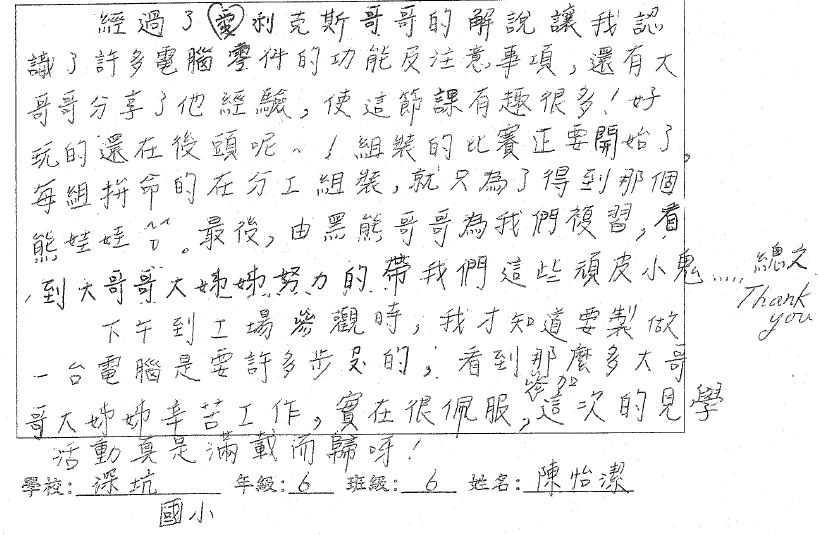 經過了愛利克斯哥哥的解說讓我認
識了許多電腦零件的功能及注意事項，還有大
哥哥分享了他經驗，使這節課有趣很多！好
玩的還在後頭呢～！組裝的比賽正要開始了，
每組拚命的在分工組裝，就只為了得到那個
熊娃娃。最後，由黑熊哥哥為我們複習，看
到大哥哥大姊姊努力的帶我們這些頑皮小鬼.....總之
Thank
you
下午到工場參觀時，我才知道要製做
一台電腦是要許多步足的；看到那麼多大哥
哥大姊姊辛苦工作，實在很佩服，參加這次的見學
活動真是滿載而歸呀！
學校：深坑 年級：6 班級：6 姓名：陳怡潔
國小